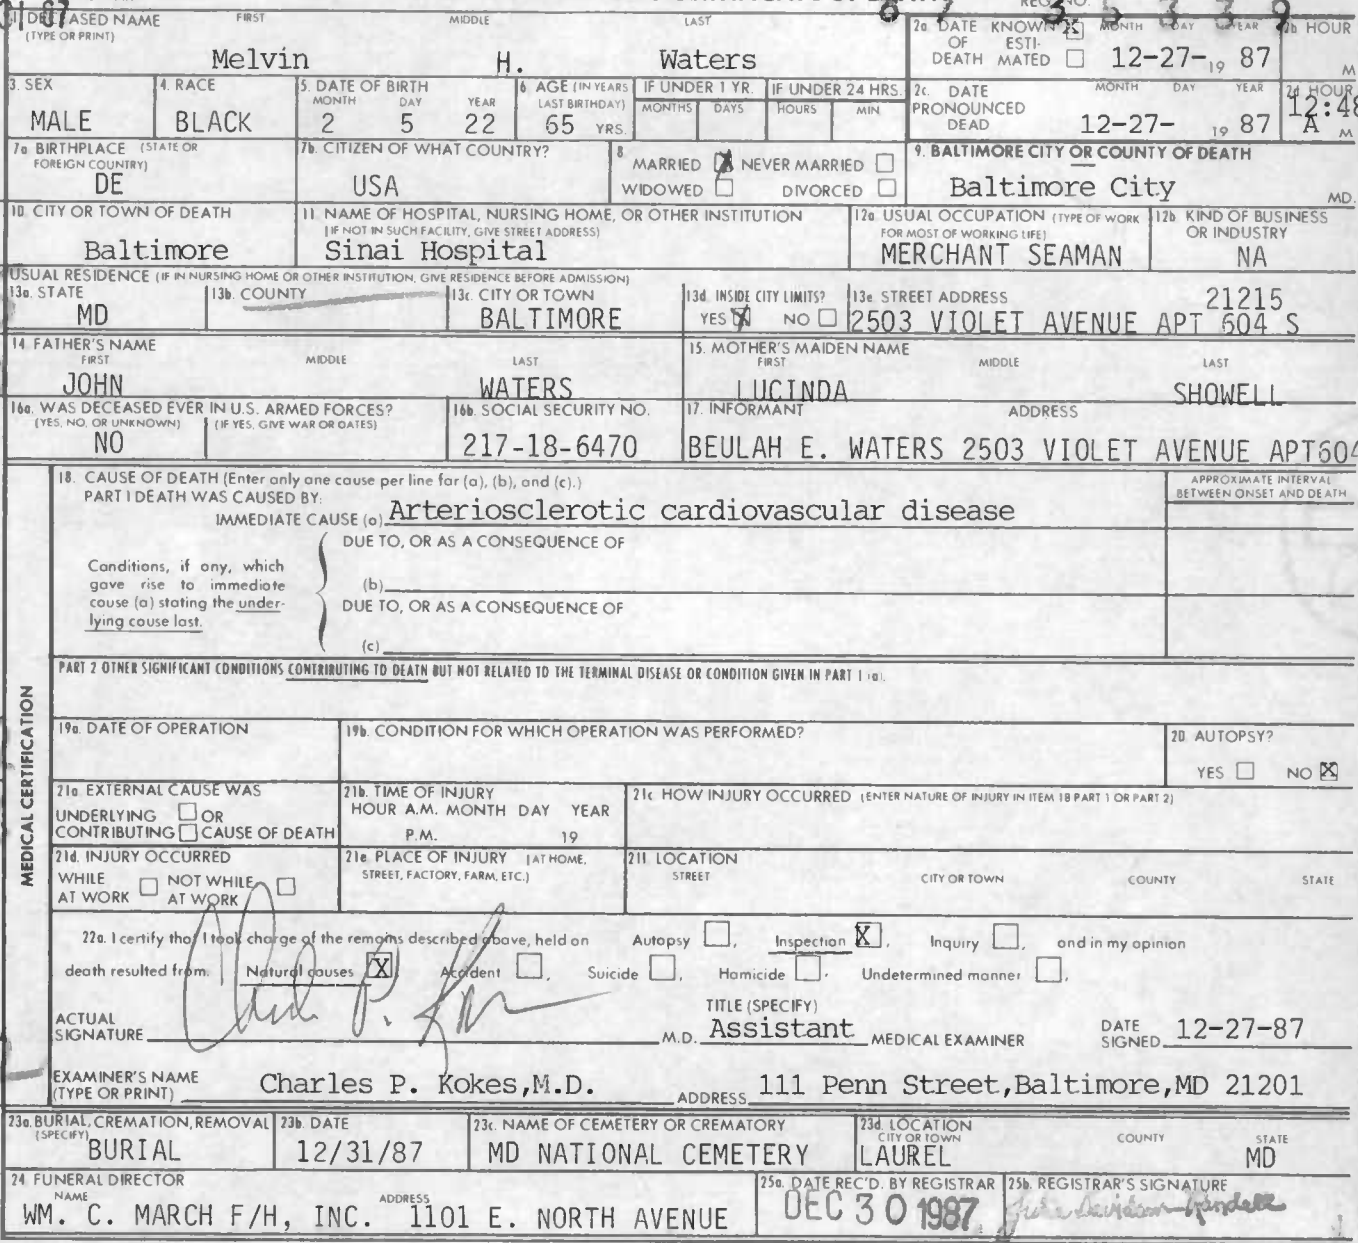 31 87 6 7 3 5 3 3 9
REG. NO.
1. DECEASED NAME FIRST MIDDLE LAST
(TYPE OR PRINT)
Melvin H. Waters
2a. DATE KNOWN X MONTH DAY YEAR 2b. HOUR
OF ESTI-
DEATH MATED 12-27- 19 87 M
3. SEX MALE
4. RACE BLACK
5. DATE OF BIRTH
MONTH DAY YEAR
2 5 22
6. AGE (IN YEARS
LAST BIRTHDAY)
65 YRS.
IF UNDER 1 YR. IF UNDER 24 HRS.
MONTHS DAYS HOURS MIN
2c. DATE MONTH DAY YEAR 2d. HOUR
PRONOUNCED
DEAD 12-27- 19 87 12:48
A M
7a. BIRTHPLACE (STATE OR
FOREIGN COUNTRY)
DE
7b. CITIZEN OF WHAT COUNTRY?
USA
8. MARRIED X NEVER MARRIED
WIDOWED DIVORCED
9. BALTIMORE CITY OR COUNTY OF DEATH
Baltimore City MD.
10. CITY OR TOWN OF DEATH
Baltimore
11. NAME OF HOSPITAL, NURSING HOME, OR OTHER INSTITUTION
(IF NOT IN SUCH FACILITY, GIVE STREET ADDRESS)
Sinai Hospital
12a. USUAL OCCUPATION (TYPE OF WORK
FOR MOST OF WORKING LIFE)
MERCHANT SEAMAN
12b. KIND OF BUSINESS
OR INDUSTRY
NA
USUAL RESIDENCE (IF IN NURSING HOME OR OTHER INSTITUTION, GIVE RESIDENCE BEFORE ADMISSION)
13a. STATE
MD
13b. COUNTY
13c. CITY OR TOWN
BALTIMORE
13d. INSIDE CITY LIMITS?
YES X NO
13e. STREET ADDRESS 21215
2503 VIOLET AVENUE APT 604 S
14. FATHER'S NAME
FIRST MIDDLE LAST
JOHN WATERS
15. MOTHER'S MAIDEN NAME
FIRST MIDDLE LAST
LUCINDA SHOWELL
16a. WAS DECEASED EVER IN U.S. ARMED FORCES?
(YES, NO, OR UNKNOWN) (IF YES, GIVE WAR OR DATES)
NO
16b. SOCIAL SECURITY NO.
217-18-6470
17. INFORMANT ADDRESS
BEULAH E. WATERS 2503 VIOLET AVENUE APT604
MEDICAL CERTIFICATION
18. CAUSE OF DEATH (Enter only one cause per line for (a), (b), and (c).)
PART I DEATH WAS CAUSED BY:
IMMEDIATE CAUSE (a) Arteriosclerotic cardiovascular disease
APPROXIMATE INTERVAL
BETWEEN ONSET AND DEATH
DUE TO, OR AS A CONSEQUENCE OF
Conditions, if any, which
gave rise to immediate
cause (a) stating the under-
lying cause last.
(b)
DUE TO, OR AS A CONSEQUENCE OF
(c)
PART 2 OTHER SIGNIFICANT CONDITIONS CONTRIBUTING TO DEATH BUT NOT RELATED TO THE TERMINAL DISEASE OR CONDITION GIVEN IN PART I (a).
19a. DATE OF OPERATION
19b. CONDITION FOR WHICH OPERATION WAS PERFORMED?
20. AUTOPSY?
YES NO X
21a. EXTERNAL CAUSE WAS
UNDERLYING OR
CONTRIBUTING CAUSE OF DEATH
21b. TIME OF INJURY
HOUR A.M. MONTH DAY YEAR
P.M. 19
21c. HOW INJURY OCCURRED (ENTER NATURE OF INJURY IN ITEM 18 PART 1 OR PART 2)
21d. INJURY OCCURRED
WHILE NOT WHILE
AT WORK AT WORK
21e. PLACE OF INJURY (AT HOME,
STREET, FACTORY, FARM, ETC.)
21f. LOCATION
STREET CITY OR TOWN COUNTY STATE
22a. I certify that I took charge of the remains described above, held on Autopsy , Inspection X , Inquiry , and in my opinion
death resulted from: Natural causes X Accident , Suicide , Homicide , Undetermined manner ,
ACTUAL
SIGNATURE Charles P. Kokes M.D.
TITLE (SPECIFY)
Assistant MEDICAL EXAMINER
DATE
SIGNED 12-27-87
EXAMINER'S NAME
(TYPE OR PRINT) Charles P. Kokes,M.D. ADDRESS 111 Penn Street,Baltimore,MD 21201
23a. BURIAL, CREMATION, REMOVAL
(SPECIFY)
BURIAL
23b. DATE
12/31/87
23c. NAME OF CEMETERY OR CREMATORY
MD NATIONAL CEMETERY
23d. LOCATION
CITY OR TOWN COUNTY STATE
LAUREL MD
24. FUNERAL DIRECTOR
NAME ADDRESS
WM. C. MARCH F/H, INC. 1101 E. NORTH AVENUE
25a. DATE REC'D. BY REGISTRAR
DEC 30 1987
25b. REGISTRAR'S SIGNATURE
Julia Davidson-Randall